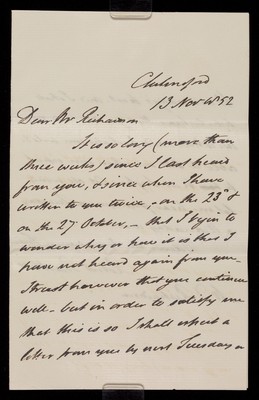 Chelmsford
13 Nov 1852
Dear Mr Richardson
It is so long (more than
three weeks) since I last heard
from you, & since when I have
written to you twice, - on the 23d &
on the 27 October, - that I begin to
wonder why or how it is that I
have not heard again from you -
I trust however that you continue
well - but in order to satisfy me
that this is so I shall expect a
letter from you by next Tuesday or